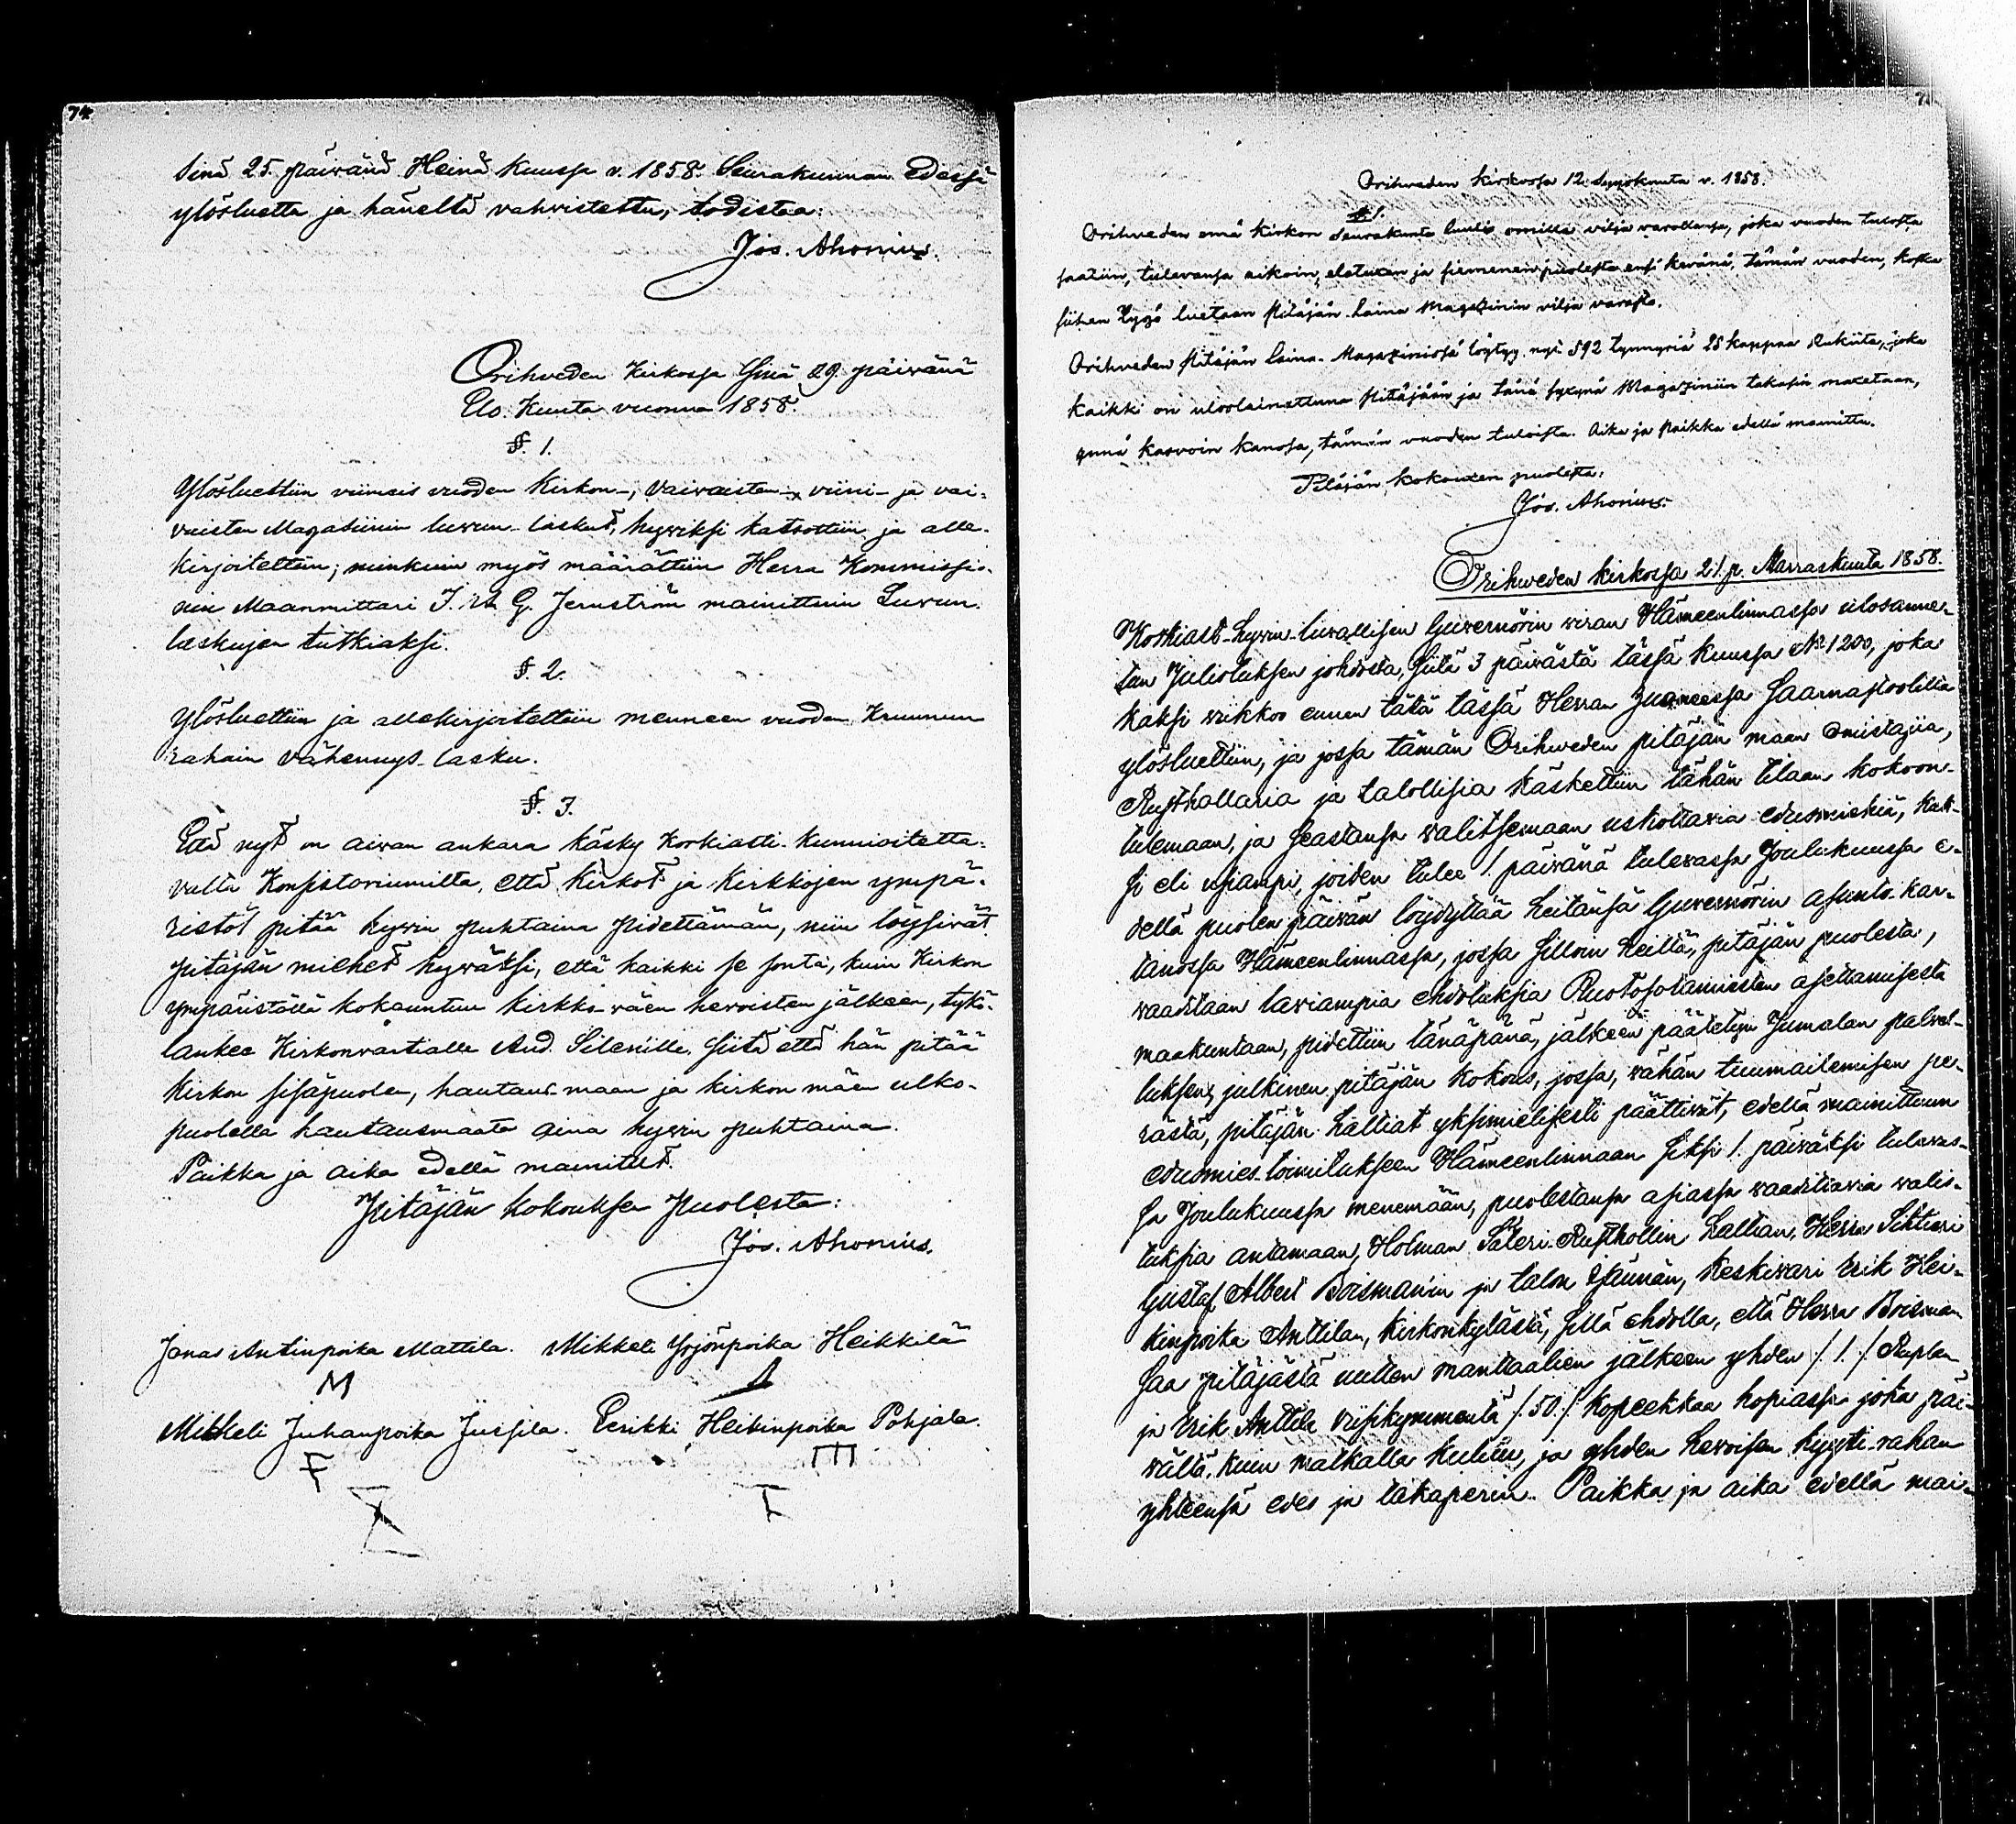 74
Sinä 25. päivänä Heinä kuussa v. 1858. Seurakunnan edessä
ylösluettu ja häneltä vahvistettu, todistaa:
Jos. Ahonius.
Orihveden Kirkossa Sinä 29. päivänä
Elo. Kuuta vuonna 1858.
§. 1.
Ylösluettiin viimeis vuoden Kirkon-, Vaivaisten-, viini- ja vai-
vaisten Magasiinin luvun-laskut, hyviksi katsottiin ja alle-
kirjoitettiin; niinkuin myös määrättiin Herra Kommissio-
nin Maanmittari J. A. G. Jernström mainittuin Luvun-
laskujen tutkiaksi.
§. 2.
Ylösluettiin ja allekirjoitettiin menneen vuoden Kruunun
rahain vähennys-lasku.
§. 3.
Että nyt on aivan ankara käsky Korkiasti-kunnioitetta-
valta Konsistoriumilta, että kirkot ja kirkkojen ympä-
ristöt pitää hyvin puhtaina pidettämän, niin löysivät
pitäjän miehet hyväksi, että kaikki se sonta, kuin Kirkon
ympäristöllä kokountuu kirkko-väen hevoisten jälkeen, tykö-
lankee Kirkonvartialle And. Sileniille, siitä että hän pitää
Kirkon sisäpuolen, hautaus-maan ja kirkon mäen ulko-
puolella hautausmaata aina hyvin puhtaina.
Paikka ja aika edellä mainitut.
Pitäjän kokouksen puolesta:
Jos. Ahonius.
Jonas Antinpoika Mattila. Mikkeli Yrjönpoika Heikkilä
M
Mikkeli Juhanpoika Jussila. Eerikki Heikinpoika Pohjala.
Orihveden kirkossa 12. Syyskuuta v. 1858.
§ 1.
Orihveden emä kirkon Seurakunta luulis omilla vilja varoillansa, joka vuoden tulosta
saatiin, tulevansa aikoin, elatuxen ja siemenen puolesta ensi kevänä, tämän vuoden, koska
siihen lyyö luetaan Pitäjän-Laina Magazinin vilja varasto.
Orihveden Pitäjän Laina-Magazinissä löytyy nyt 592 tynnyriä 28 kappaa Rukiita, joka
kaikki on uloslainattuna Pitäjään ja tänä syxynä Magaziniin takasin maxetaan,
ynnä kasvoin kanssa, tämän vuoden tuloista. Aika ja paikka edellä mainittu.
Pitäjän kokouxen puolesta:
Jos. Ahonius.
Orihweden kirkossa 21. p. Marraskuuta 1858.
Korkiast-hywin-luvallisen Guvernörin viran Hämeenlinnassa ulosanne-
tun Julistuksen johdosta, siitä 3 päivästä tässä kuussa No 1200, joka
kaksi wiikkoo ennen tätä tässä Herran Huoneessa Saarnastoolilta
ylösluettiin, ja jossa tämän Orihweden pitäjän maan omistajia,
Rusthollaria ja talollisia käskettiin tähän tilaan kokoon-
tulemaan, ja seastansa walitsemaan uskottavia edusmiehiä, kak-
si eli usiampi, joiden tulee 1. päivänä tulevassa Joulukuussa e-
dellä puolen päivän löydyttää heitänsä Guvernörin asunto-kar-
tanossa Hämeenlinnassa, jossa silloin heiltä, pitäjän puolesta,
vaaditaan laviampia ehdotuksia Ruotusotamiesten asettamisesta
maakuntaan, pidettiin tänäpänä, jälkeen päätetyn Jumalan palvel-
luksen, julkinen pitäjän kokous, jossa, vähän tuumailemisen pe-
rästä, pitäjän haltiat yksimielisesti päättivät, edellä mainittuun
edusmies-toimitukseen Hämeenlinnaan siksi 1. päiväksi tulevas-
sa Joulukuussa menemään, puolestansa asiassa vaadittavia valis-
tuksia antamaan, Holman Säteri-Rusthollin haltian, Herra Sihteri
Gustaf Albert Boismanin ja talon isännän, keskivari Erik Hei-
kinpoika Anttilan, kirkonkylästä, sillä ehdolla, että Herra Boisman
saa pitäjästä uutten manttaalien jälkeen yhden /:1:/ Ruplan
ja Erik Anttila viisikymmentä /:50:/ kopeekkaa hopiassa joka päi-
vältä, kuin matkalla kuluu, ja yhden hevoisen kyyti-rahan
yhteensä edes ja takaperin. Paikka ja aika edellä mai-